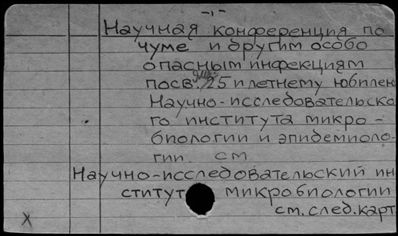 -1-
Научная конференция по
чуме и другим особо
опасным инфекциям
посв. 25 и летнему юбилею
Научно-исследовательско
го института микро-
биологии и эпидемиоло-
гии см.
Научно-исследовательский ин
ститут микробиологии
см. след. карт
X